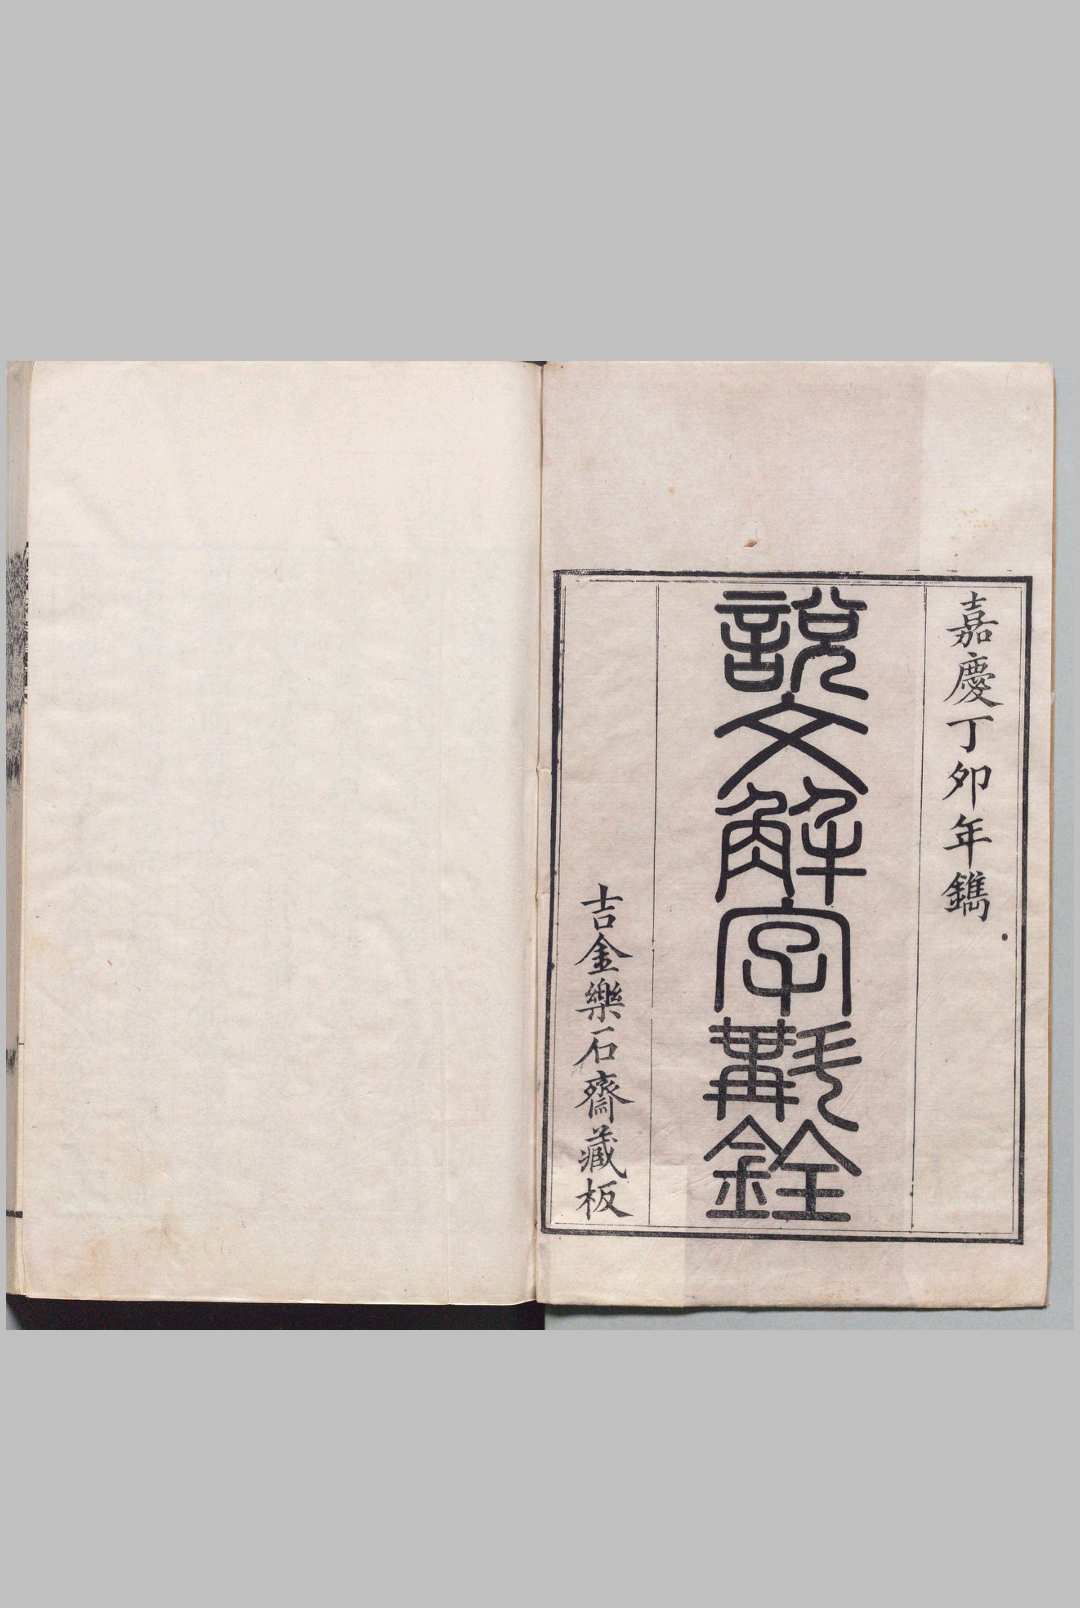 嘉慶丁夘年鐫
說文解字斠詮
吉金樂石齋藏板